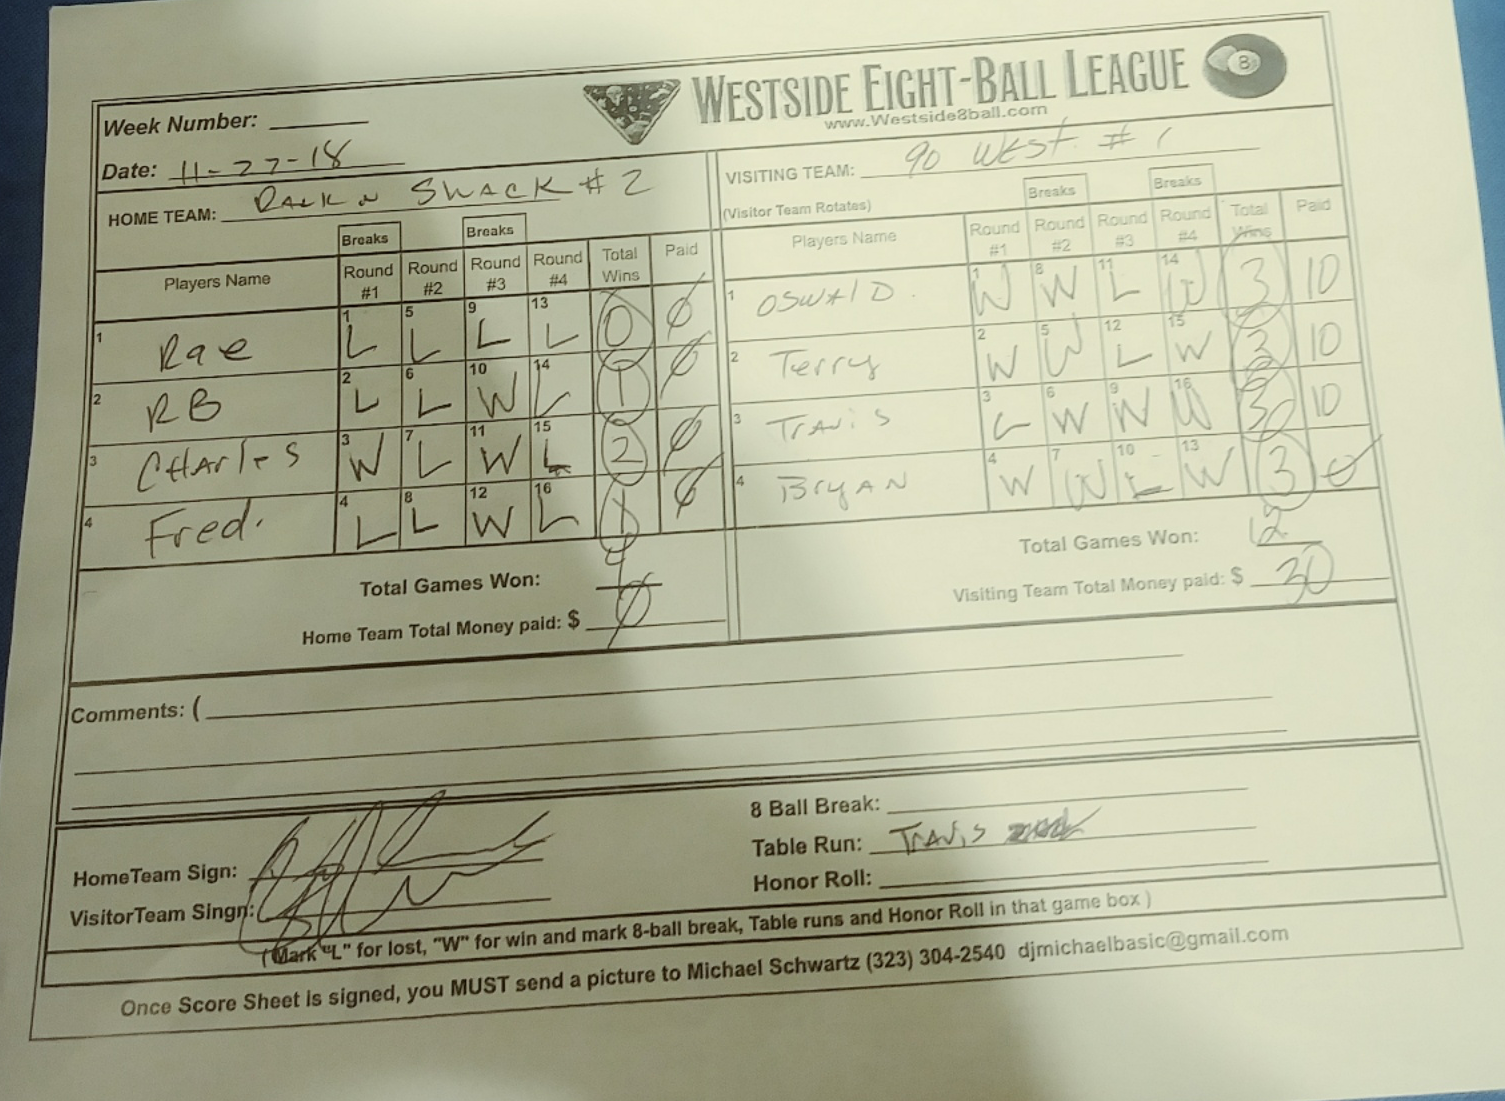 WESTSIDE EIGHT-BALL LEAGUE
8
www.Westside8ball.com
Week Number:
Date: 11-27-18
HOME TEAM: RACK N SHACK #2
VISITING TEAM: 90 West #1
(Visitor Team Rotates)
Breaks Breaks
Players Name Round #1 Round #2 Round #3 Round #4 Total Wins Paid
1 Rae 1 L 5 L 9 L 13 L 0 Ø
2 RB 2 L 6 L 10 W 14 L 1 Ø
3 CHArles 3 W 7 L 11 W 15 L 2 Ø
4 Fred. 4 L 8 L 12 W 16 L 1 Ø
Total Games Won: 4
Home Team Total Money paid: $ Ø
Breaks Breaks
Players Name Round #1 Round #2 Round #3 Round #4 Total Wins Paid
1 OSWALD. 1 W 8 W 11 L 14 W 3 10
2 Terry 2 W 5 W 12 L 15 W 3 10
3 TRAViS 3 L 6 W 9 W 16 W 3 10
4 BryAN 4 W 7 W 10 L 13 W 3 Ø
Total Games Won: 12
Visiting Team Total Money paid: $ 30
Comments: (
HomeTeam Sign:
VisitorTeam Singn:
8 Ball Break:
Table Run: TRAViS
Honor Roll:
(Mark "L" for lost, "W" for win and mark 8-ball break, Table runs and Honor Roll in that game box )
Once Score Sheet is signed, you MUST send a picture to Michael Schwartz (323) 304-2540 djmichaelbasic@gmail.com